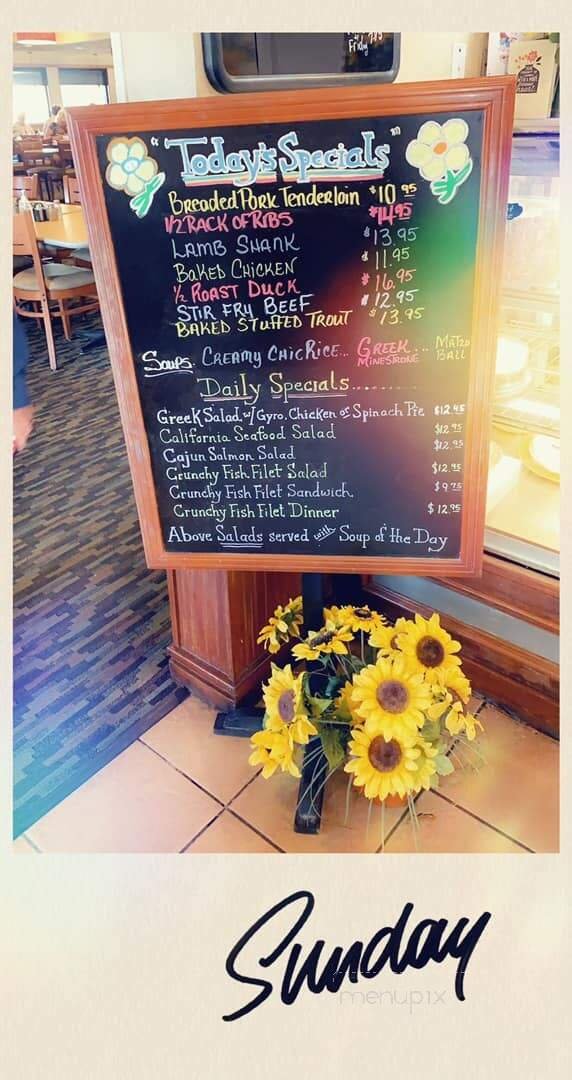 Friday
"Today's Specials"
Breaded Pork Tenderloin $10.95
1/2 RACK OF RIBS $14.95
LAMB SHANK $13.95
BAKED CHICKEN $11.95
1/2 ROAST DUCK $16.95
STIR FRY BEEF $12.95
BAKED STUFFED TROUT $13.95
Soups: Creamy ChicRice... GREEK MINESTRONE... MATZO BALL
Daily Specials..........
Greek Salad w/ Gyro, Chicken or Spinach Pie $12.45
California Seafood Salad $12.95
Cajun Salmon Salad $12.95
Crunchy Fish Filet Salad $12.95
Crunchy Fish Filet Sandwich $9.75
Crunchy Fish Filet Dinner $12.95
Above Salads served with Soup of the Day
Sunday
menupix